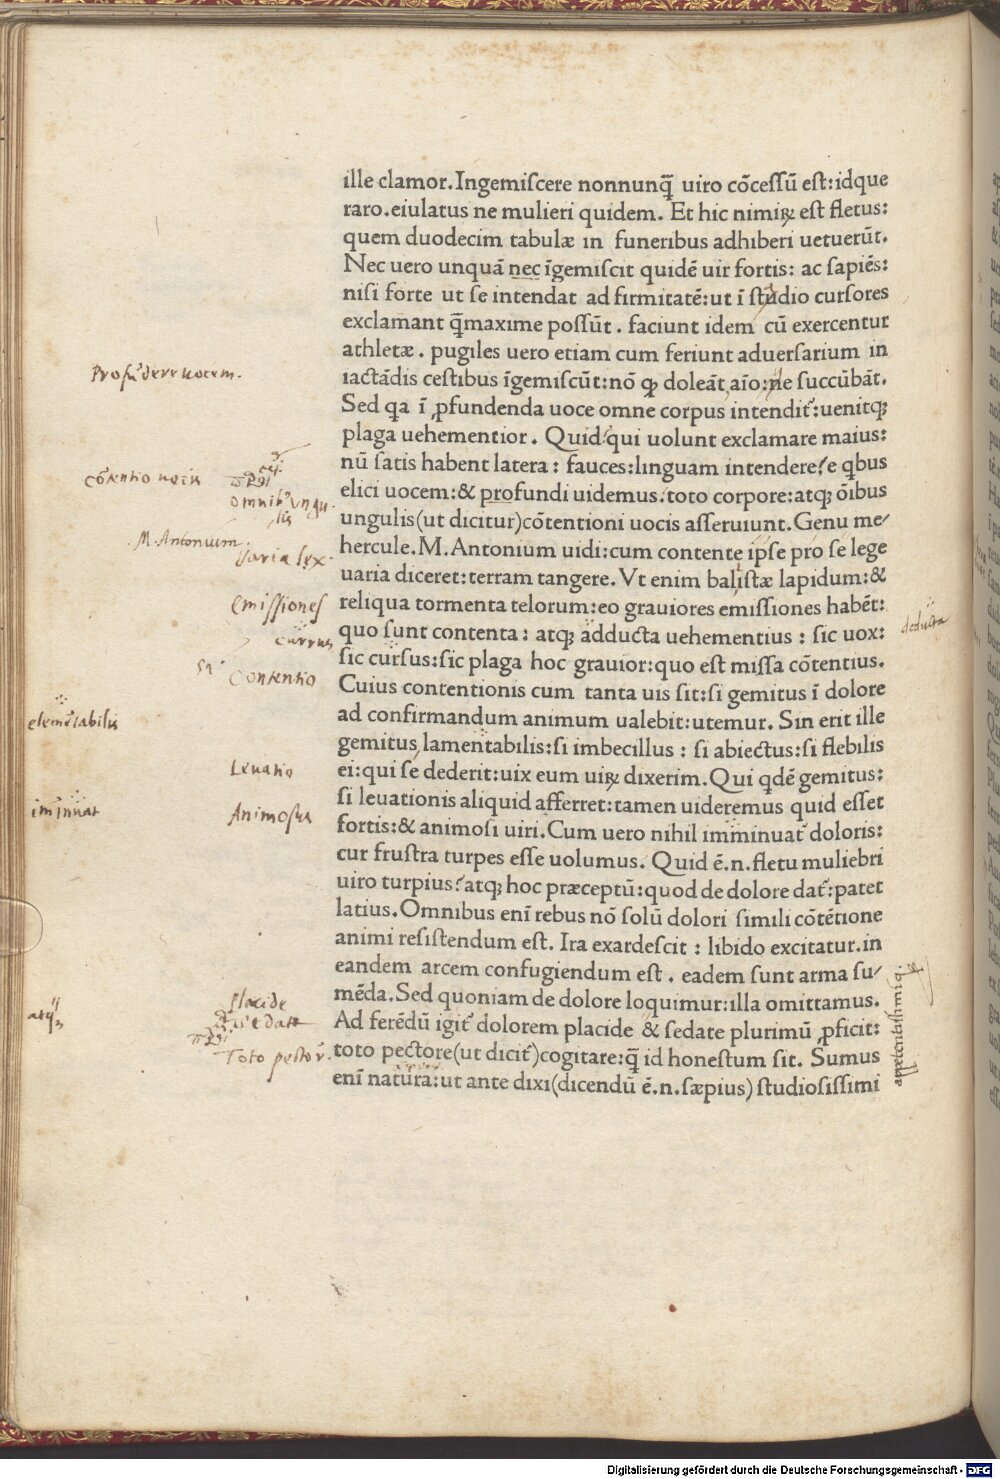 ille clamor. Ingemiſcere nonnunq̃ uiro cōceſſū eſt: idque
raro. eiulatus ne mulieri quidem. Et hic nimiꝝ eſt fletus:
quem duodecim tabulæ in funeribus adhiberi uetuerūt.
Nec uero unquā nec īgemiſcit quidē uir fortis: ac ſapiēs:
niſi forte ut ſe intendat ad firmitatē: ut ī ſtudio curſores
exclamant q̃maxime poſſūt. faciunt idem cū exercentur
athletæ. pugiles uero etiam cum feriunt aduerſarium in
iactādis ceſtibus īgemiſcūt: nō ꝙ doleāt aīo: ne ſuccūbāt.
Sed qa ī ꝓfundenda uoce omne corpus intendit᷑: uenitqꝫ
plaga uehementior. Quid? qui uolunt exclamare maius:
nū ſatis habent latera: fauces: linguam intendere? e qbus
elici uocem: & profundi uidemus. toto corpore: atqꝫ ōibus
ungulis (ut dicitur) cōtentioni uocis aſſeruiunt. Genu me⸗
hercule. M. Antonium uidi: cum contente ipſe pro ſe lege
uaria diceret: terram tangere. Vt enim baliſtæ lapidum: &
reliqua tormenta telorum: eo grauiores emiſſiones habēt:
quo ſunt contenta: atqꝫ adducta uehementius: ſic uox:
ſic curſus: ſic plaga hoc grauior: quo eſt miſſa cōtentius.
Cuius contentionis cum tanta uis ſit: ſi gemitus ī dolore
ad confirmandum animum ualebit: utemur. Sin erit ille
gemitus lamentabilis: ſi imbecillus: ſi abiectus: ſi flebilis
ei: qui ſe dederit: uix eum uiꝝ dixerim. Qui qdē gemitus:
ſi leuationis aliquid afferret: tamen uideremus quid eſſet
fortis: & animoſi uiri. Cum uero nihil imminuat doloris:
cur fruſtra turpes eſſe uolumus. Quid ē.n. fletu muliebri
uiro turpius? atqꝫ hoc præceptū: quod de dolore dat᷑: patet
latius. Omnibus enī rebus nō ſolū dolori ſimili cōtētione
animi reſiſtendum eſt. Ira exardeſcit: libido excitatur. in
eandem arcem confugiendum eſt. eadem ſunt arma ſu⸗
mēda. Sed quoniam de dolore loquimur: illa omittamus.
Ad ferēdū igit᷑ dolorem placide & ſedate plurimū ꝓficit:
toto pectore (ut dicit᷑) cogitare: q̃ id honeſtum ſit. Sumus
enī natura: ut ante dixi (dicendū ē.n. ſæpius) ſtudioſiſſimi
Profūdere uocem.
cōtentio uocis
omnib᷑ ungu
lis
M. Antonium.
Varia lex.
Emiſſiones
currus
deducta
Contentio
elemētabilis
Leuatio
iminuat
Animoſus
placide
sedate
Toto pectore.
atqꝫ
appetentiſſimiqꝫ
Digitalisierung gefördert durch die Deutsche Forschungsgemeinschaft - DFG